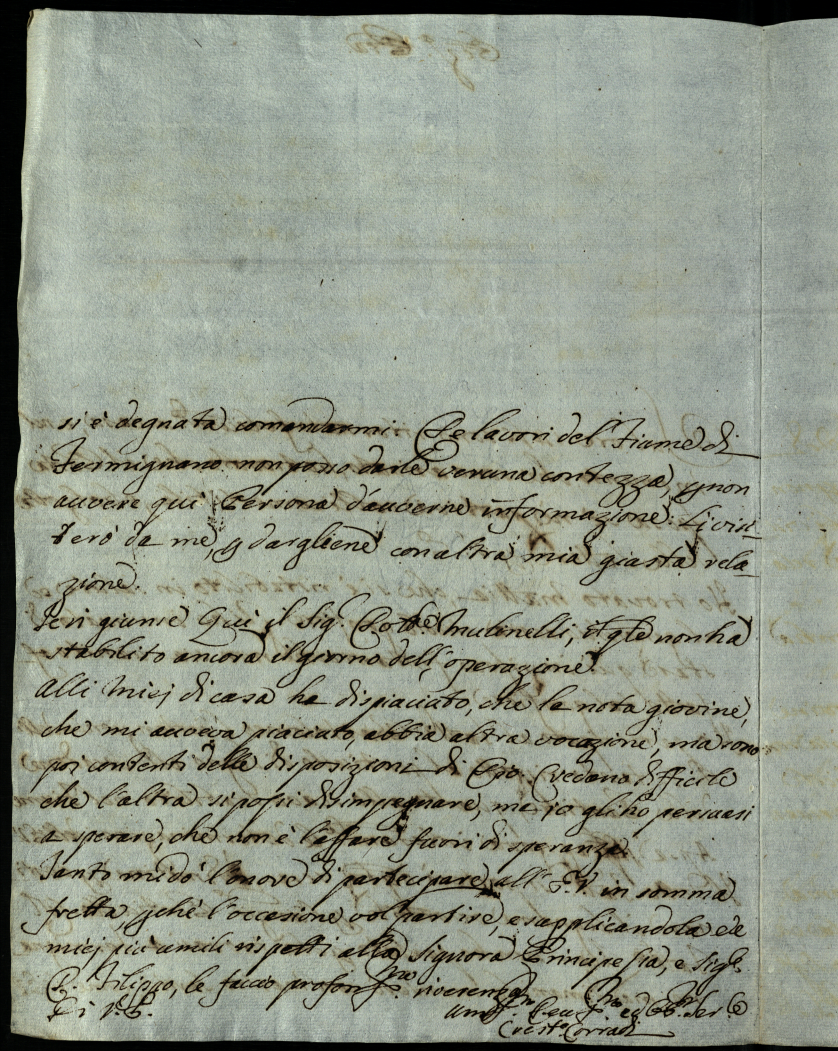 si è degnata comandarmi. De lavori del Fiume di
Fermignano non posso darle veruna contezza, p non
avvere qui Persona d'avverne informazione. Li visi-
terò da me, p dargliene con altra mia giusta rela-
zione.
Jeri giunse Qui il Sig.r Dott.re Mutinelli, il qle non ha
stabilito ancora il giorno dell'operazione.
Alli Miej di casa ha dispiaciuto, che la nota giovine,
che mi avveva piaciuto, abbia altra vocazione, ma sono
poi contenti delle disposizioni di Dio. Credono difficile
che l'altra si possi disimpegnare, ma jo gli ho persuasi
a sperare, che non è l'affare fuori di speranza.
Tanto mi dò l'onore di partecipare all' in somma
fretta, pchè l'occasione vol partire, e supplicandola de
miej più umili rispetti alla Signora Principessa, e Sig.r
D. Filippo, le faccio profond.ma riverenza
Di V.E.
Um.o ed Obb. Ser.e
Corradi